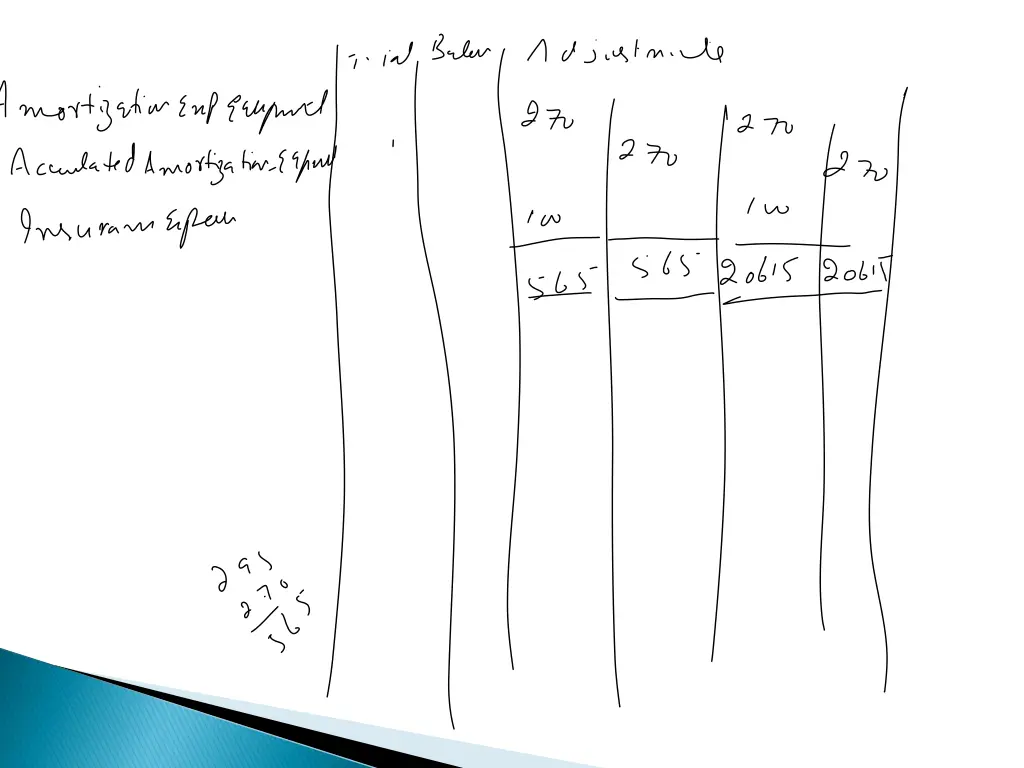 Trial Balan Adjustments
Amortization Exp Equipment 270 270
Acculated Amortization-Equpment 270 270
Insurance Expen 100 100
565 565 20615 20615
295
270
565